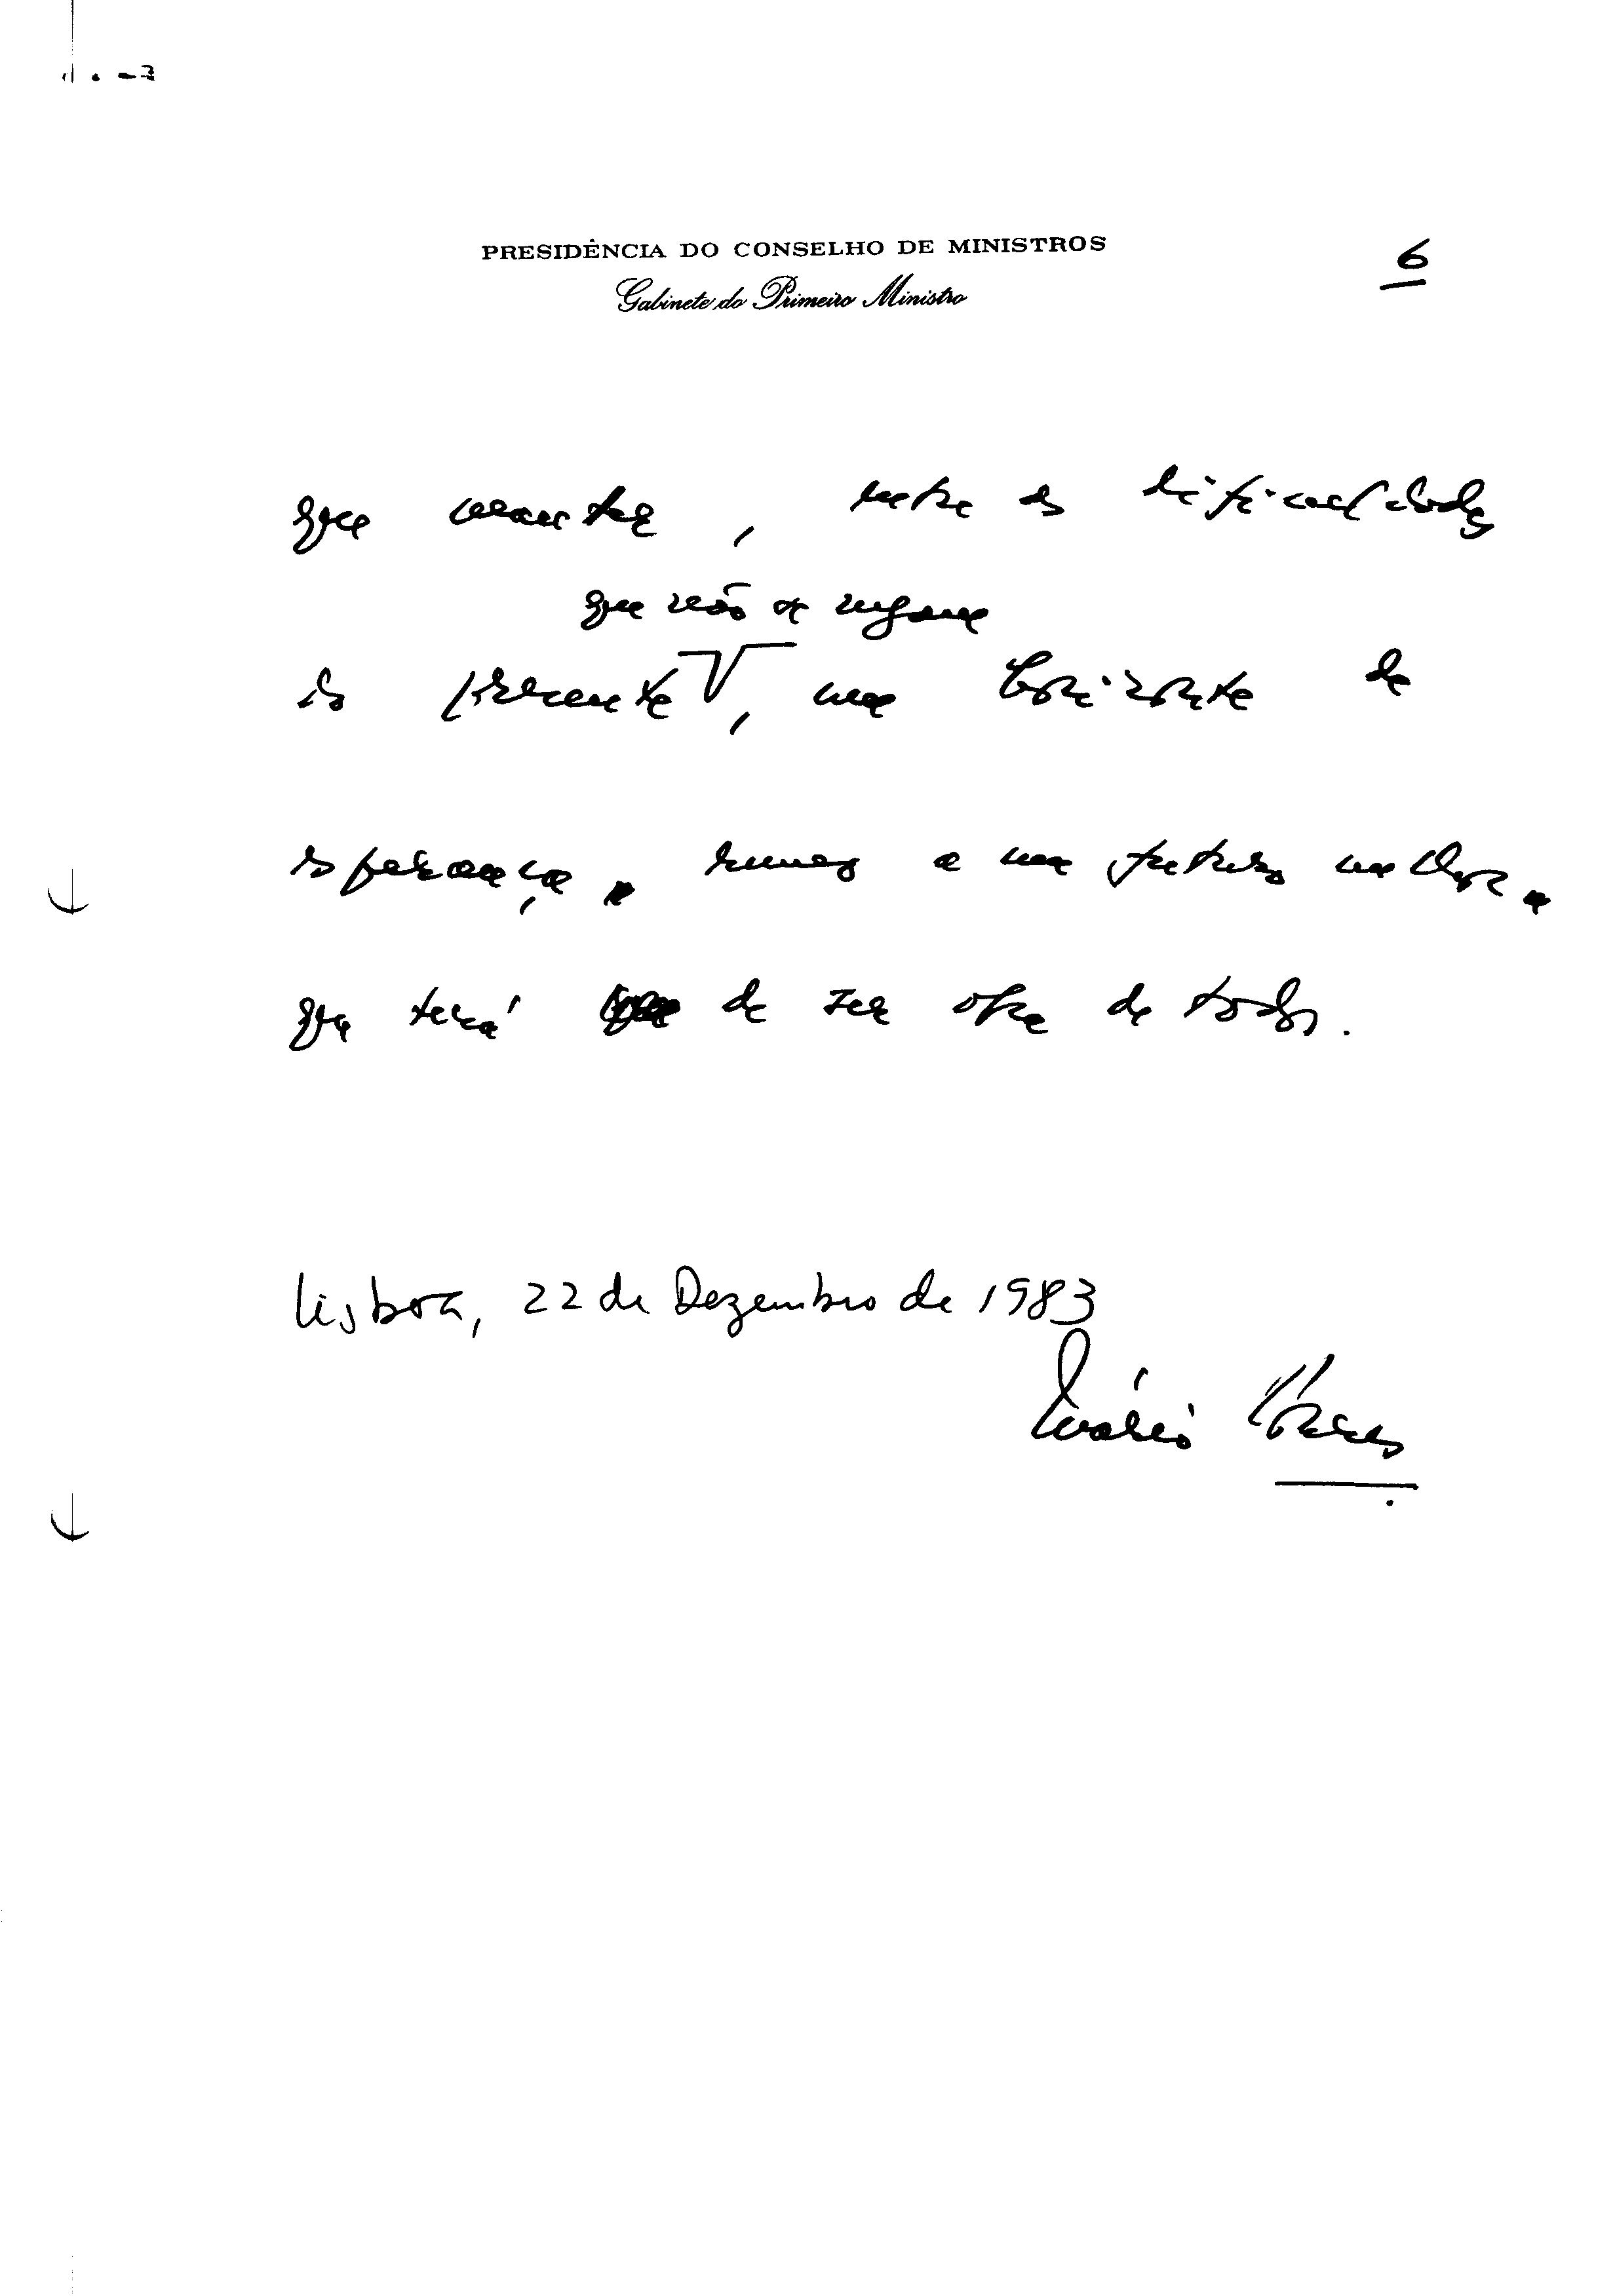 PRESIDÊNCIA DO CONSELHO DE MINISTROS
Gabinete do Primeiro Ministro
6
que manter, entre as dificuldades
que não se negam
do presente, um horizonte de
esperança, rumo a um futuro melhor
que terá de ser obra de todos.
Lisboa, 22 de Dezembro de 1983
Mário Soares